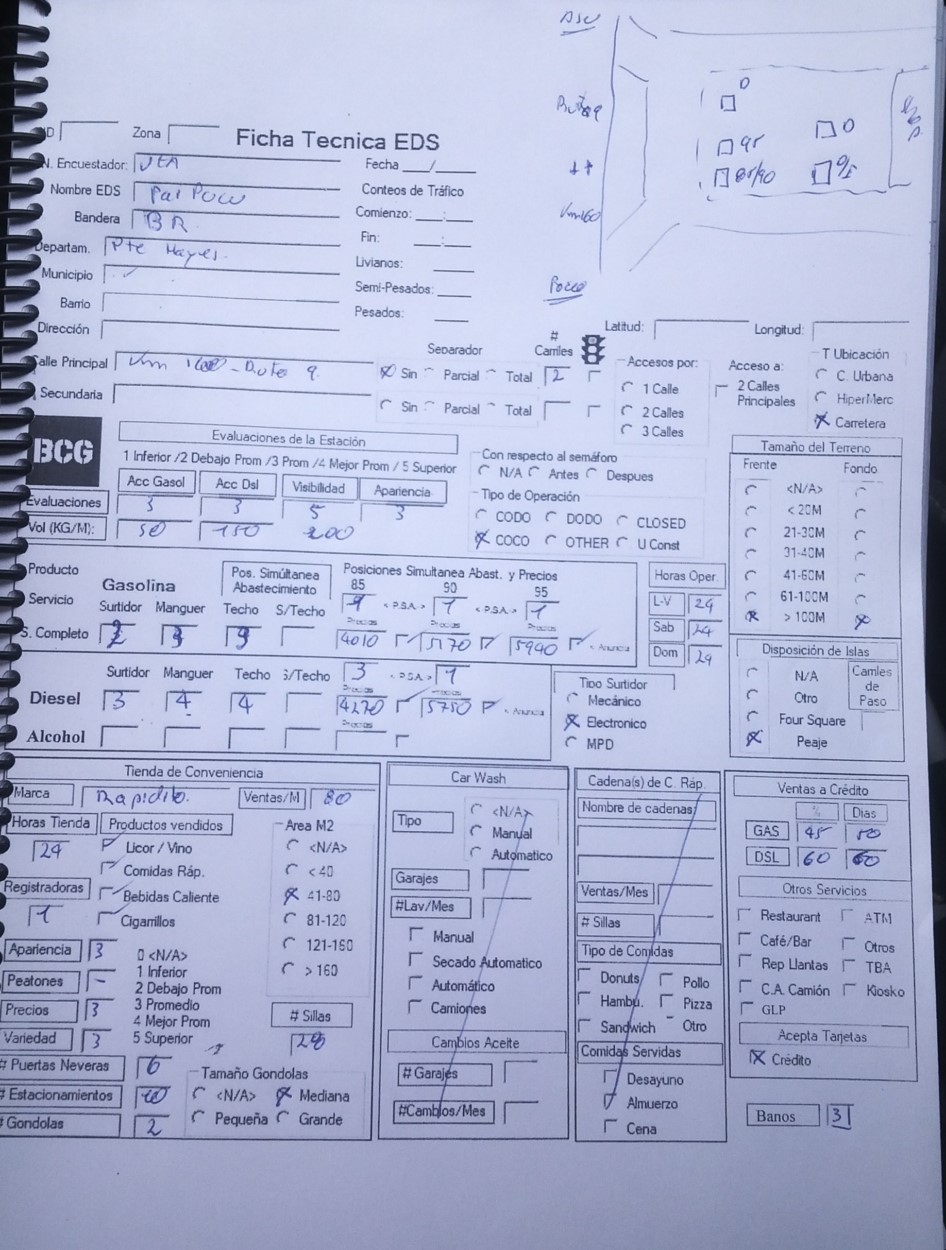 ASU
Ruta 9
Km 160
Pozo
0
95
85/90
0
95
ID
Zona
Ficha Tecnica EDS
N. Encuestador: JEA
Fecha ___/____
Nombre EDS
Conteos de Tráfico
Bandera BR
Comienzo: ___:___
Departam. Pte Hayes.
Fin: ___:___
Municipio
Livianos: ____
Barrio
Semi-Pesados: ____
Dirección
Pesados: ____
Latitud:
Longitud:
Separador
# Carriles
Calle Principal
Sin Parcial Total 2
Secundaria
Sin Parcial Total
Accesos por:
1 Calle
2 Calles
3 Calles
Acceso a:
2 Calles Principales
T Ubicación
C. Urbana
HiperMerc
Carretera
BCG
Evaluaciones de la Estación
1 Inferior /2 Debajo Prom /3 Prom /4 Mejor Prom / 5 Superior
Acc Gasol Acc Dsl Visibilidad Apariencia
Evaluaciones 3 3 5 3
Vol (KG/M): 50 150 200
Con respecto al semáforo
N/A Antes Despues
Tipo de Operación
CODO DODO CLOSED
COCO OTHER U Const
Tamaño del Terreno
Frente Fondo
<N/A>
< 20M
21-30M
31-40M
41-60M
61-100M
> 100M
Producto
Servicio
Gasolina
Pos. Simúltanea Abastecimiento
Posiciones Simultanea Abast. y Precios
85 90 95
< P.S.A.> 1 < P.S.A.> 1
Surtidor Manguer Techo S/Techo
Precios Precios Precios
S. Completo
4010 5170 5940 < Anuncia
Horas Oper.
L-V 24
Sab 24
Dom 24
Surtidor Manguer Techo S/Techo 3 < P.S.A.> 1
Precios Precios
Diesel 3 4 4 4270 5750 < Anuncia
Alcohol
Tipo Surtidor
Mecánico
Electronico
MPD
Disposición de Islas
N/A
Otro
Four Square
Peaje
Carriles de Paso
Tienda de Conveniencia
Marca Rapidito. Ventas/M 80
Horas Tienda Productos vendidos
24
Licor / Vino
Comidas Ráp.
Registradoras
1
Bebidas Caliente
Cigarrillos
Area M2
<N/A>
< 40
41-80
81-120
121-160
> 160
Apariencia 3
Peatones -
Precios 3
Variedad 3
0 <N/A>
1 Inferior
2 Debajo Prom
3 Promedio
4 Mejor Prom
5 Superior
# Sillas
28
# Puertas Neveras 6
# Estacionamientos 10
# Gondolas 2
Tamaño Gondolas
<N/A> Mediana
Pequeña Grande
Car Wash
Tipo
<N/A>
Manual
Automatico
Garajes
#Lav/Mes
Manual
Secado Automatico
Automático
Camiones
Cambios Aceite
# Garajes
#Cambios/Mes
Cadena(s) de C. Ráp.
Nombre de cadenas:
Ventas/Mes
# Sillas
Tipo de Comidas
Donuts Pollo
Hambu. Pizza
Sandwich Otro
Comidas Servidas
Desayuno
Almuerzo
Cena
Ventas a Crédito
% Dias
GAS 45 50
DSL 60 60
Otros Servicios
Restaurant ATM
Café/Bar Otros
Rep Llantas TBA
C.A. Camión Kiosko
GLP
Acepta Tarjetas
Crédito
Banos 3